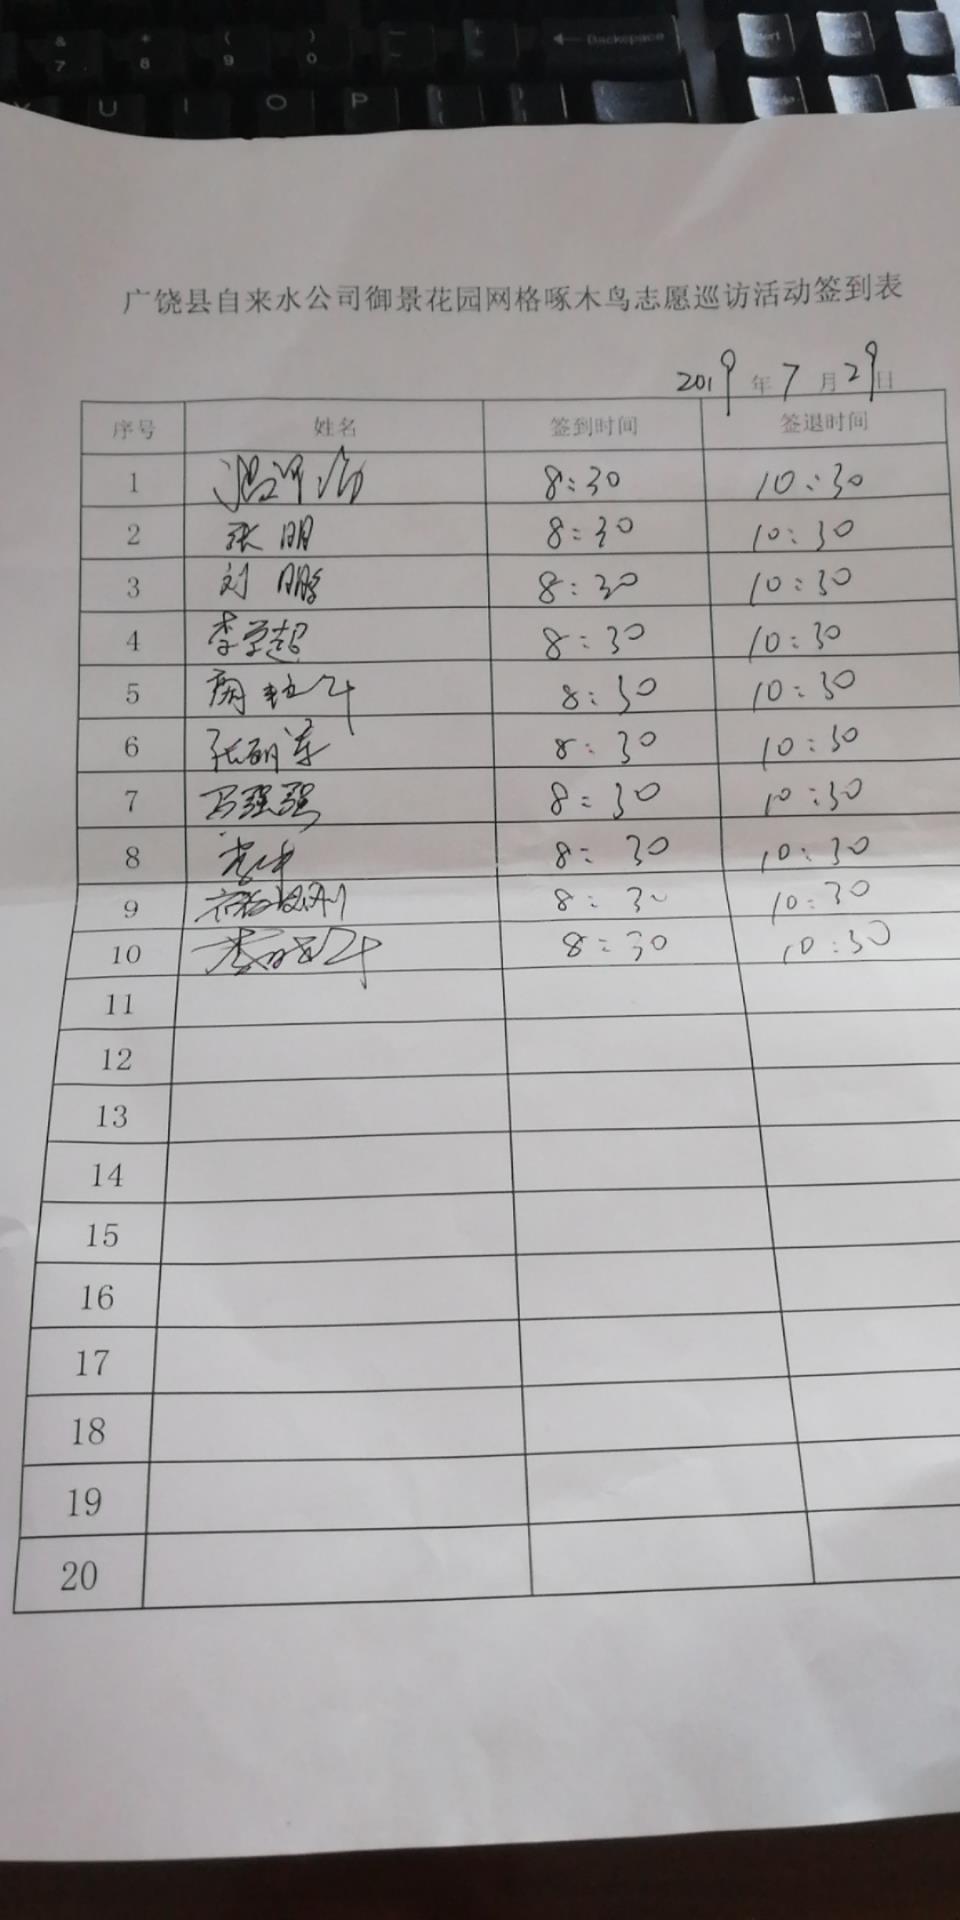 & * ( ) — +
7 8 9 0 - ← Backspace
U I O P
广饶县自来水公司御景花园网格啄木鸟志愿巡访活动签到表
2019年7月29日
序号 姓名 签到时间 签退时间
1 8:30 10:30
2 张明 8:30 10:30
3 刘鹏 8:30 10:30
4 李学超 8:30 10:30
5 8:30 10:30
6 8:30 10:30
7 马强强 8:30 10:30
8 8:30 10:30
9 8:30 10:30
10 8:30 10:30
11
12
13
14
15
16
17
18
19
20